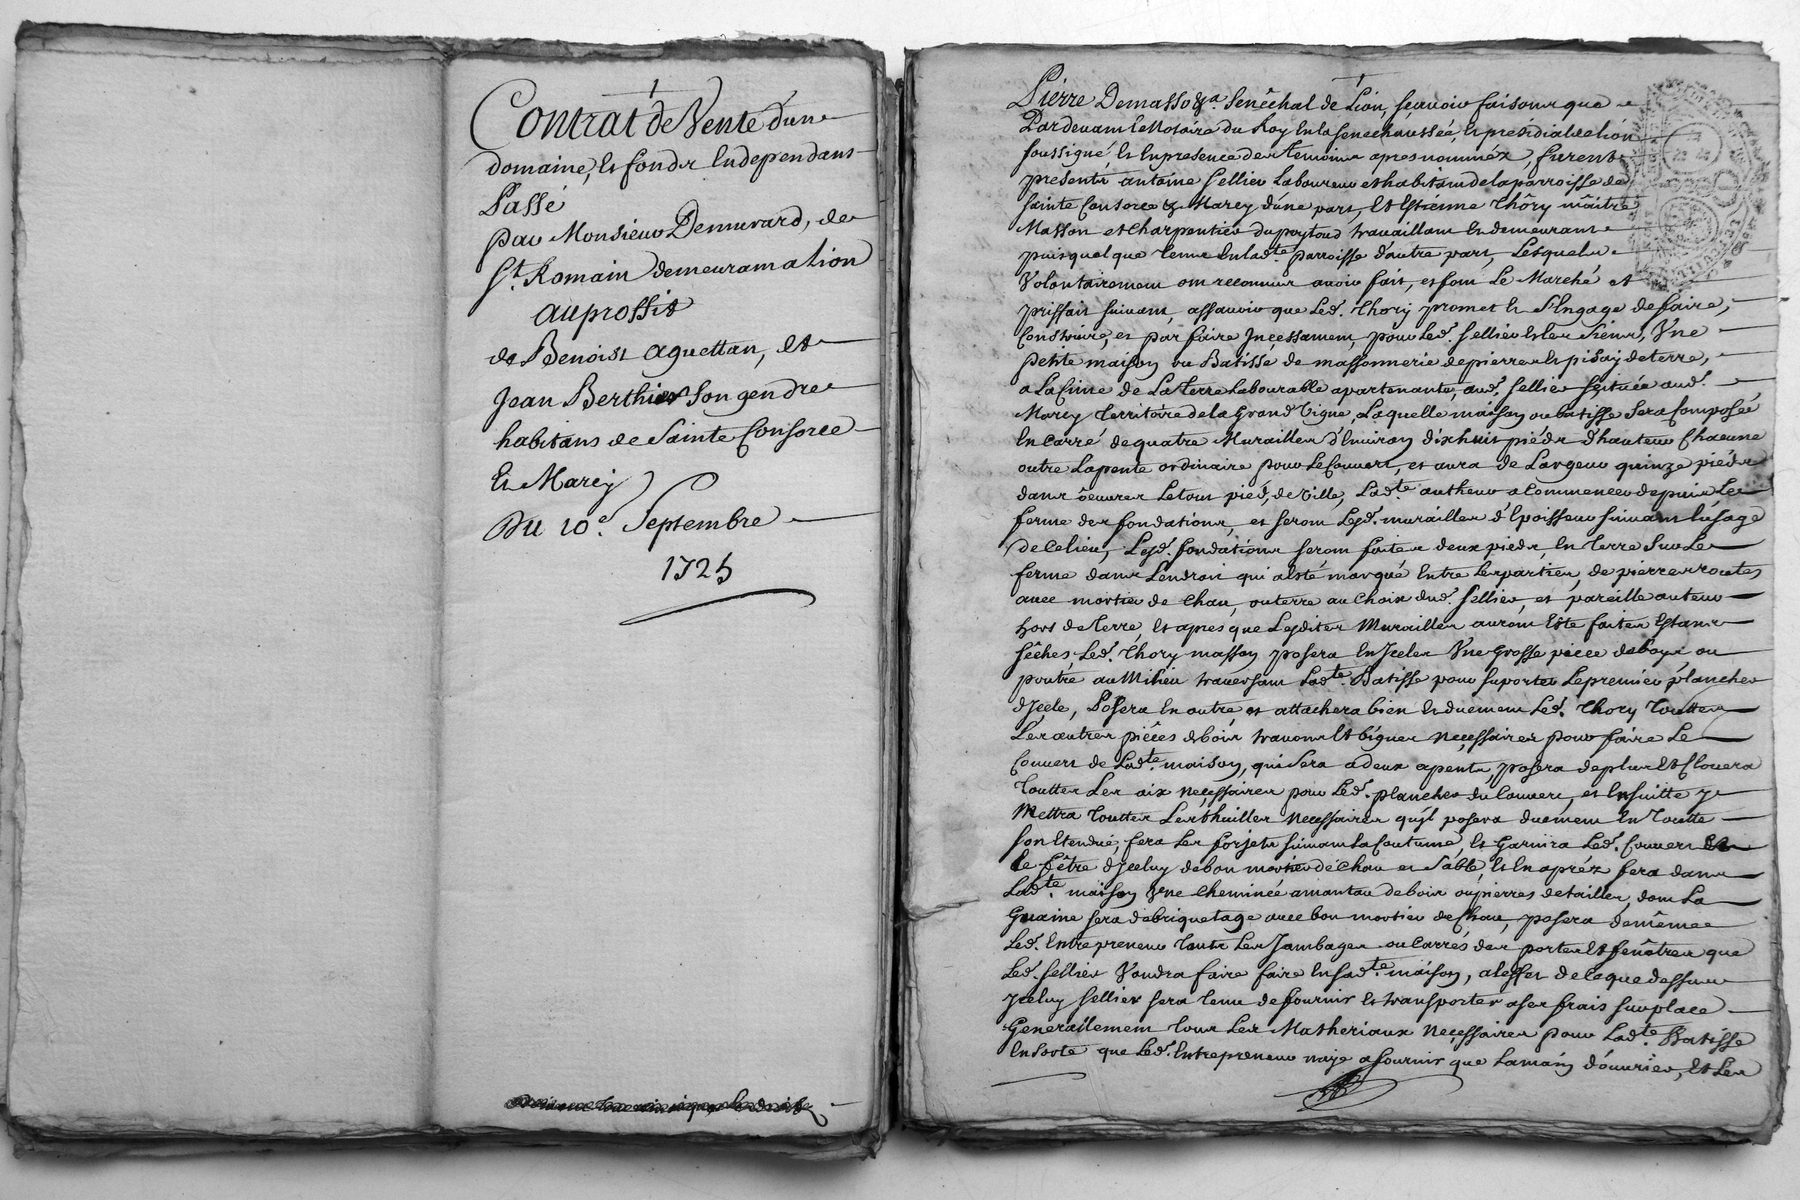 Contrat de Vente d'un
domaine, et fonds Independans
Passé
par Monsieur Demurard, de
St. Romain demeurant a lion
au proffit
de Benoist aguettan, et
Jean Berthier son gendre
habitans de Sainte Consorce
et Marcy
Du 10e. Septembre
1725
Pierre Demasso &a. Senêchal de Lion, sçauoir faisons que
Pardeuant Le Notaire du Roy En la Senechaussée, et presidial de lion
soussigné, et En presence des temoins apres nomméz, furent
presents antoine Sellier Laboureur et habitant de la parroisse de
Sainte Consorce & Marcy d'une part, Et Estienne Thory maitre
Masson et charpentier du poytoud travaillant et demeurant
puis quelque tems En lade. parroisse d'autre part, Lesquels
Volontairement ont reconnus auoir fait, et font Le Marché et
priffait suiuant, assauoir que Led. Thory promet et s'Engage de faire,
Construire, et par faire Incessament pour Led. Sellier et les siens, Vne
petite maison ou Batisse de massonnerie de pierres et pisay de terre,
a La Cime de La terre Labourable apartenante, aud. Sellier scituée aud.
Marcy territoire de la Grand Vigne, Laquelle maison ou batisse sera composée
En carré de quatre Murailles d'Enuiron dixhuit pieds d'hauteur chacune
outre La pente ordinaire pour Le Couuert, et aura de Largeur quinze pieds
dans oeuvres Le tout pied, de Ville, Ladte. autheur a Commencer depuis Le
ferme des fondations, et seront Lesd. murailles d'Epoisseur suiuant l'usage
de Ce lieu, Lesd. fondations seront faites deux pieds, En terre Sur Le
ferme dans L'endroit qui a Esté marqué Entre Les parties, de pierres
auec mortier de chau, ou terre au choix dud. Sellier, et pareille auteur
hors de terre, Et apres que Lesdites Murailles auront Esté faites Estant
sêches, Led. Thory masson posera En Iceles Vne Grosse piece de boys ou
poutre au Milieu trauersant Ladte. Batisse pour suporter Le premier plancher
d'Icele, Posera En outre, et attachera bien et duement Led. Thory touttes
Les autres pièces de bois trauons Et bigues Necessaires pour faire Le
Couuert de Ladte. maison, qui Sera a deux apents, posera de plus Et Clouera
touttes Les aix necessaires pour Led. plancher du Couuert, et Ensuitte y
Mettra touttes Les thuilles Necessaires qu'il posera duement En toutte
son Etendue; fera Les forjets suiuant La Coutume, et Garnira Led. Couuert
Le fêtre d'Iceluy de bon mortier de chau et Sable, Et En apréz fera dans
Ladte. maison Vne Cheminée a mantau de bois ou pierres de tailles, dont La
Guaine sera de briquetage auec bon mortier de chau, posera de même
Led. Entrepreneur touts Les Jambages ou Carrés des portes Et fenêtres que
Led. Sellier Voudra faire faire En Ladte. maison, a l'effet de Ce que dessus
Iceluy Sellier sera tenu de fournir et transporter a ses frais sur place
Generallement tous Les Matheriaux Necessaires pour Ladte. Batisse
En sorte que Led. Entrepreneur naye a fournir que La main d'ouurier, et Les